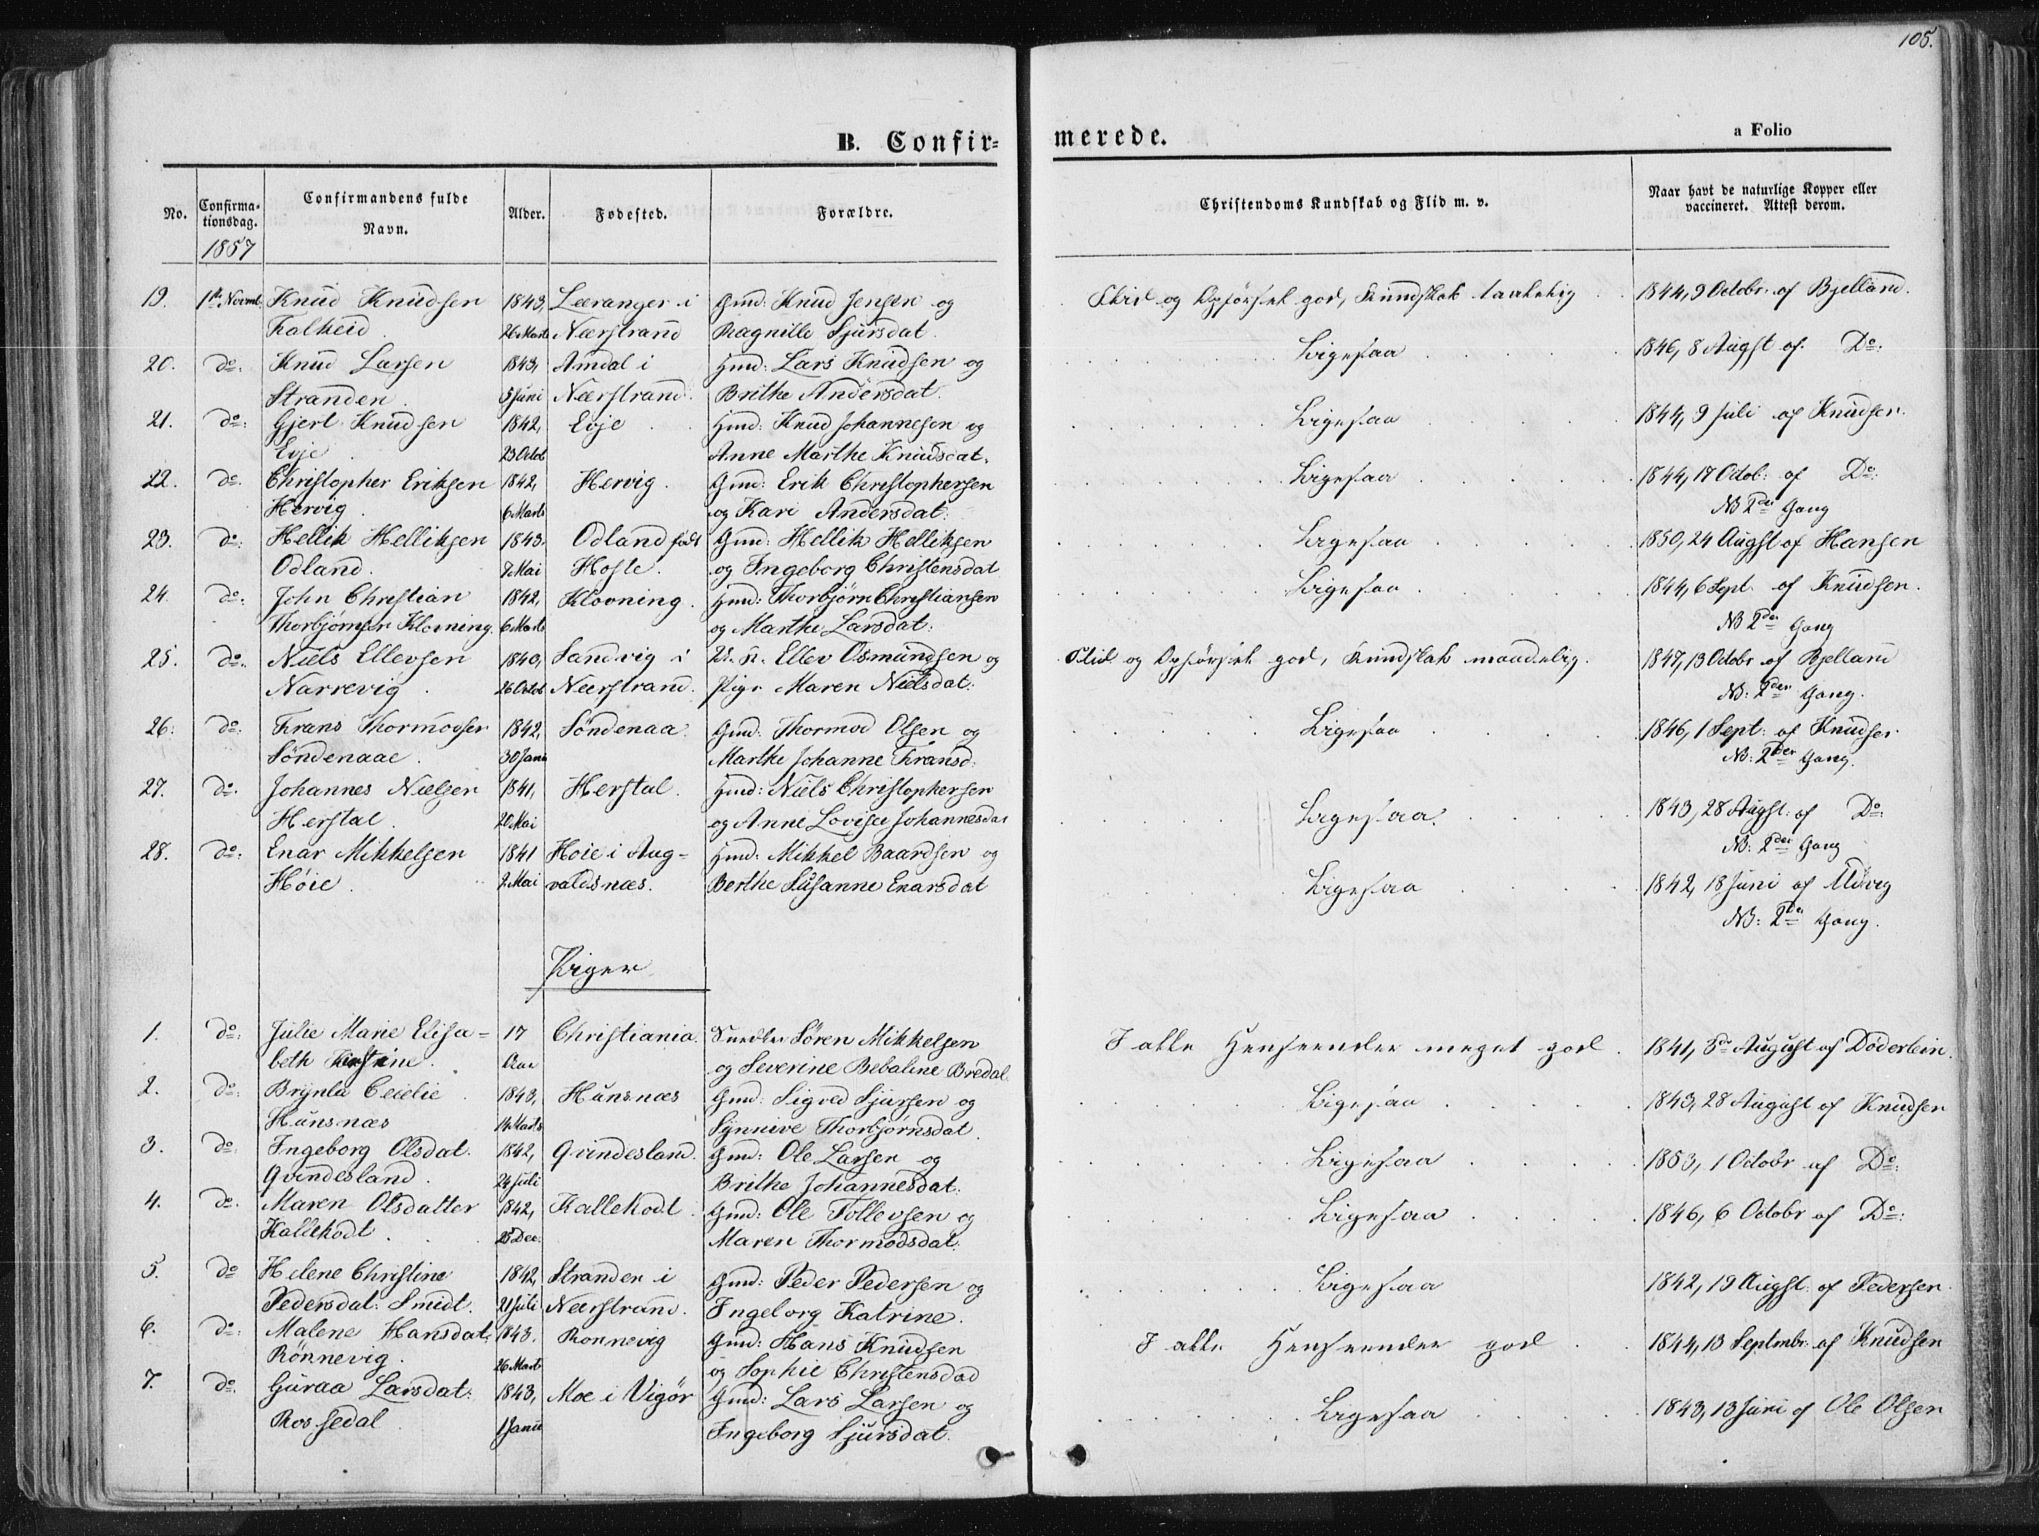 105.
B. Confir=
merede.
a Folio
No.
Confirma-
tionsdag.
1857
Confirmandens fulde
Navn.
Alder.
Fødested.
Forældre.
Christendoms Kundskab og Flid m. v.
Naar havt de naturlige Kopper eller
vaccineret. Attest derom.
19. 1ste Novmb. Knud Knudsen 1843, Leeranger i Gmd: Knud Jensen og Flid og Opførsel god, Kundskab taalelig 1844, 9 Octobr. af Bjelland.
Falkeid. 26 Marts Nærstrand Ragnille Sjursdat.
20. do: Knud Larsen 1843, Amdal i Hmd: Lars Knudsen og Ligesaa 1846, 8 Augst af. Do:
Stranden. 5 Juni Nærstrand. Brithe Andersdat.
21. do: Gjert Knudsen 1842, Evje Hmd: Knud Johannesen og Ligesaa 1844, 9 Juli af Knudsen.
Evje. 23 Octob Anne Marthe Knudsdat.
22. do: Christopher Eriksen 1842, Hervig. Gmd: Erik Christophersen Ligesaa 1844, 17 Octob: af Do:
Hervig. 6 Marts og Kari Andersdat. NB 2den Gang
23. do: Hellik Helliksen 1843. Odland født Gmd: Hellik Helliksen Ligesaa 1850, 24 Augst af Hansen
Odland. 7 Mai Hofle. og Ingeborg Christensdat
24. do: John Christian 1842, Klovning. Hmd: Thorbjørn Christiansen Ligesaa 1844, 6 Sept. af Knudsen.
Thorbjørnsen Klovning. 6 Marts og Marthe Larsdat: NB 2den Gang
25. do: Niels Ellevsen 1840, Sandvig i U. K. Ellev Osmundsen og Flid og Opførsel god, Kundskab maadelig. 1847, 13 Octobr af Bjelland
Narrevig. 26 Octob Nærstrand. Pige Maren Nielsdat: NB: 2den Gang.
26. do: Frans Thormodsen 1842, Søndenaa. Gmd: Thormod Olsen og Ligesaa 1846, 1 Sept: af Knudsen.
Søndenaae. 30 Janu Marthe Johanne Fransd: NB: 2den Gang.
27. do: Johannes Nielsen 1841, Herstal. Hmd: Niels Christophersen Ligesaa. 1843, 28 Augst: af Do:
Herstal. 20 Mai og Anne Lovise Johannesdat NB: 2den Gang
28. do: Enar Mikkelsen 1841 Høie i Aug= Hmd: Mikkel Baardsen og Ligesaa 1842, 18 Juni af Udvig
Høie. 2 Mai valdsnæs. Berthe Susanne Enarsdat NB: 2den Gang.
Piger
1. do: Julie Marie Elisa= 17 Christiania. Snedker Søren Mikkelsen I alle Henseender meget god. 1841, 8de August af Döderlein.
beth Kirstine. Aar og Severine Bebaline Bredal.
2. do: Brynla Ceielie 1843, Hunsnæs Gmd: Sigved Sjursen og Ligesaa 1843, 28 August af Knudsen
Hunsnæs 14 Marts Synnive Thorbjørnsdat.
3. do: Ingeborg Olsdat. 1842, Qvindesland. Gmd: Ole Larsen og Ligesaa 1853, 1 Octobr af Do:
Qvindesland. 24 Juli Brithe Johannesdat:
4. do. Maren Olsdatter 1842, Kallekodt. Gmd: Ole Tollevsen og Ligesaa 1846, 6 Octobr af Do:
Kallekodt. 25 Dec: Maren Thormodsdat.
5. do Helene Christine 1842, Stranden i Gmd: Peder Pedersen og Ligesaa 1842, 19 Augst: af Pedersen.
Pedersdat: Smidt. 21 Juli Nærstrand. Ingeborg Katrine.
6. do: Malene Hansdat: 1843. Rønnevig Gmd: Hans Knudsen I alle Henseender god 1844, 13 Septmbr: af Knudsen
Rønnevig. 26 Marts og Sophie Christensdad
7. do: Guraa Larsdat: 1843, Moe i Vigør Gmd: Lars Larsen og Ligesaa 1843, 13 Juni af Ole Olsen
Rossedal. 1 Janu Ingeborg Sjursdat.